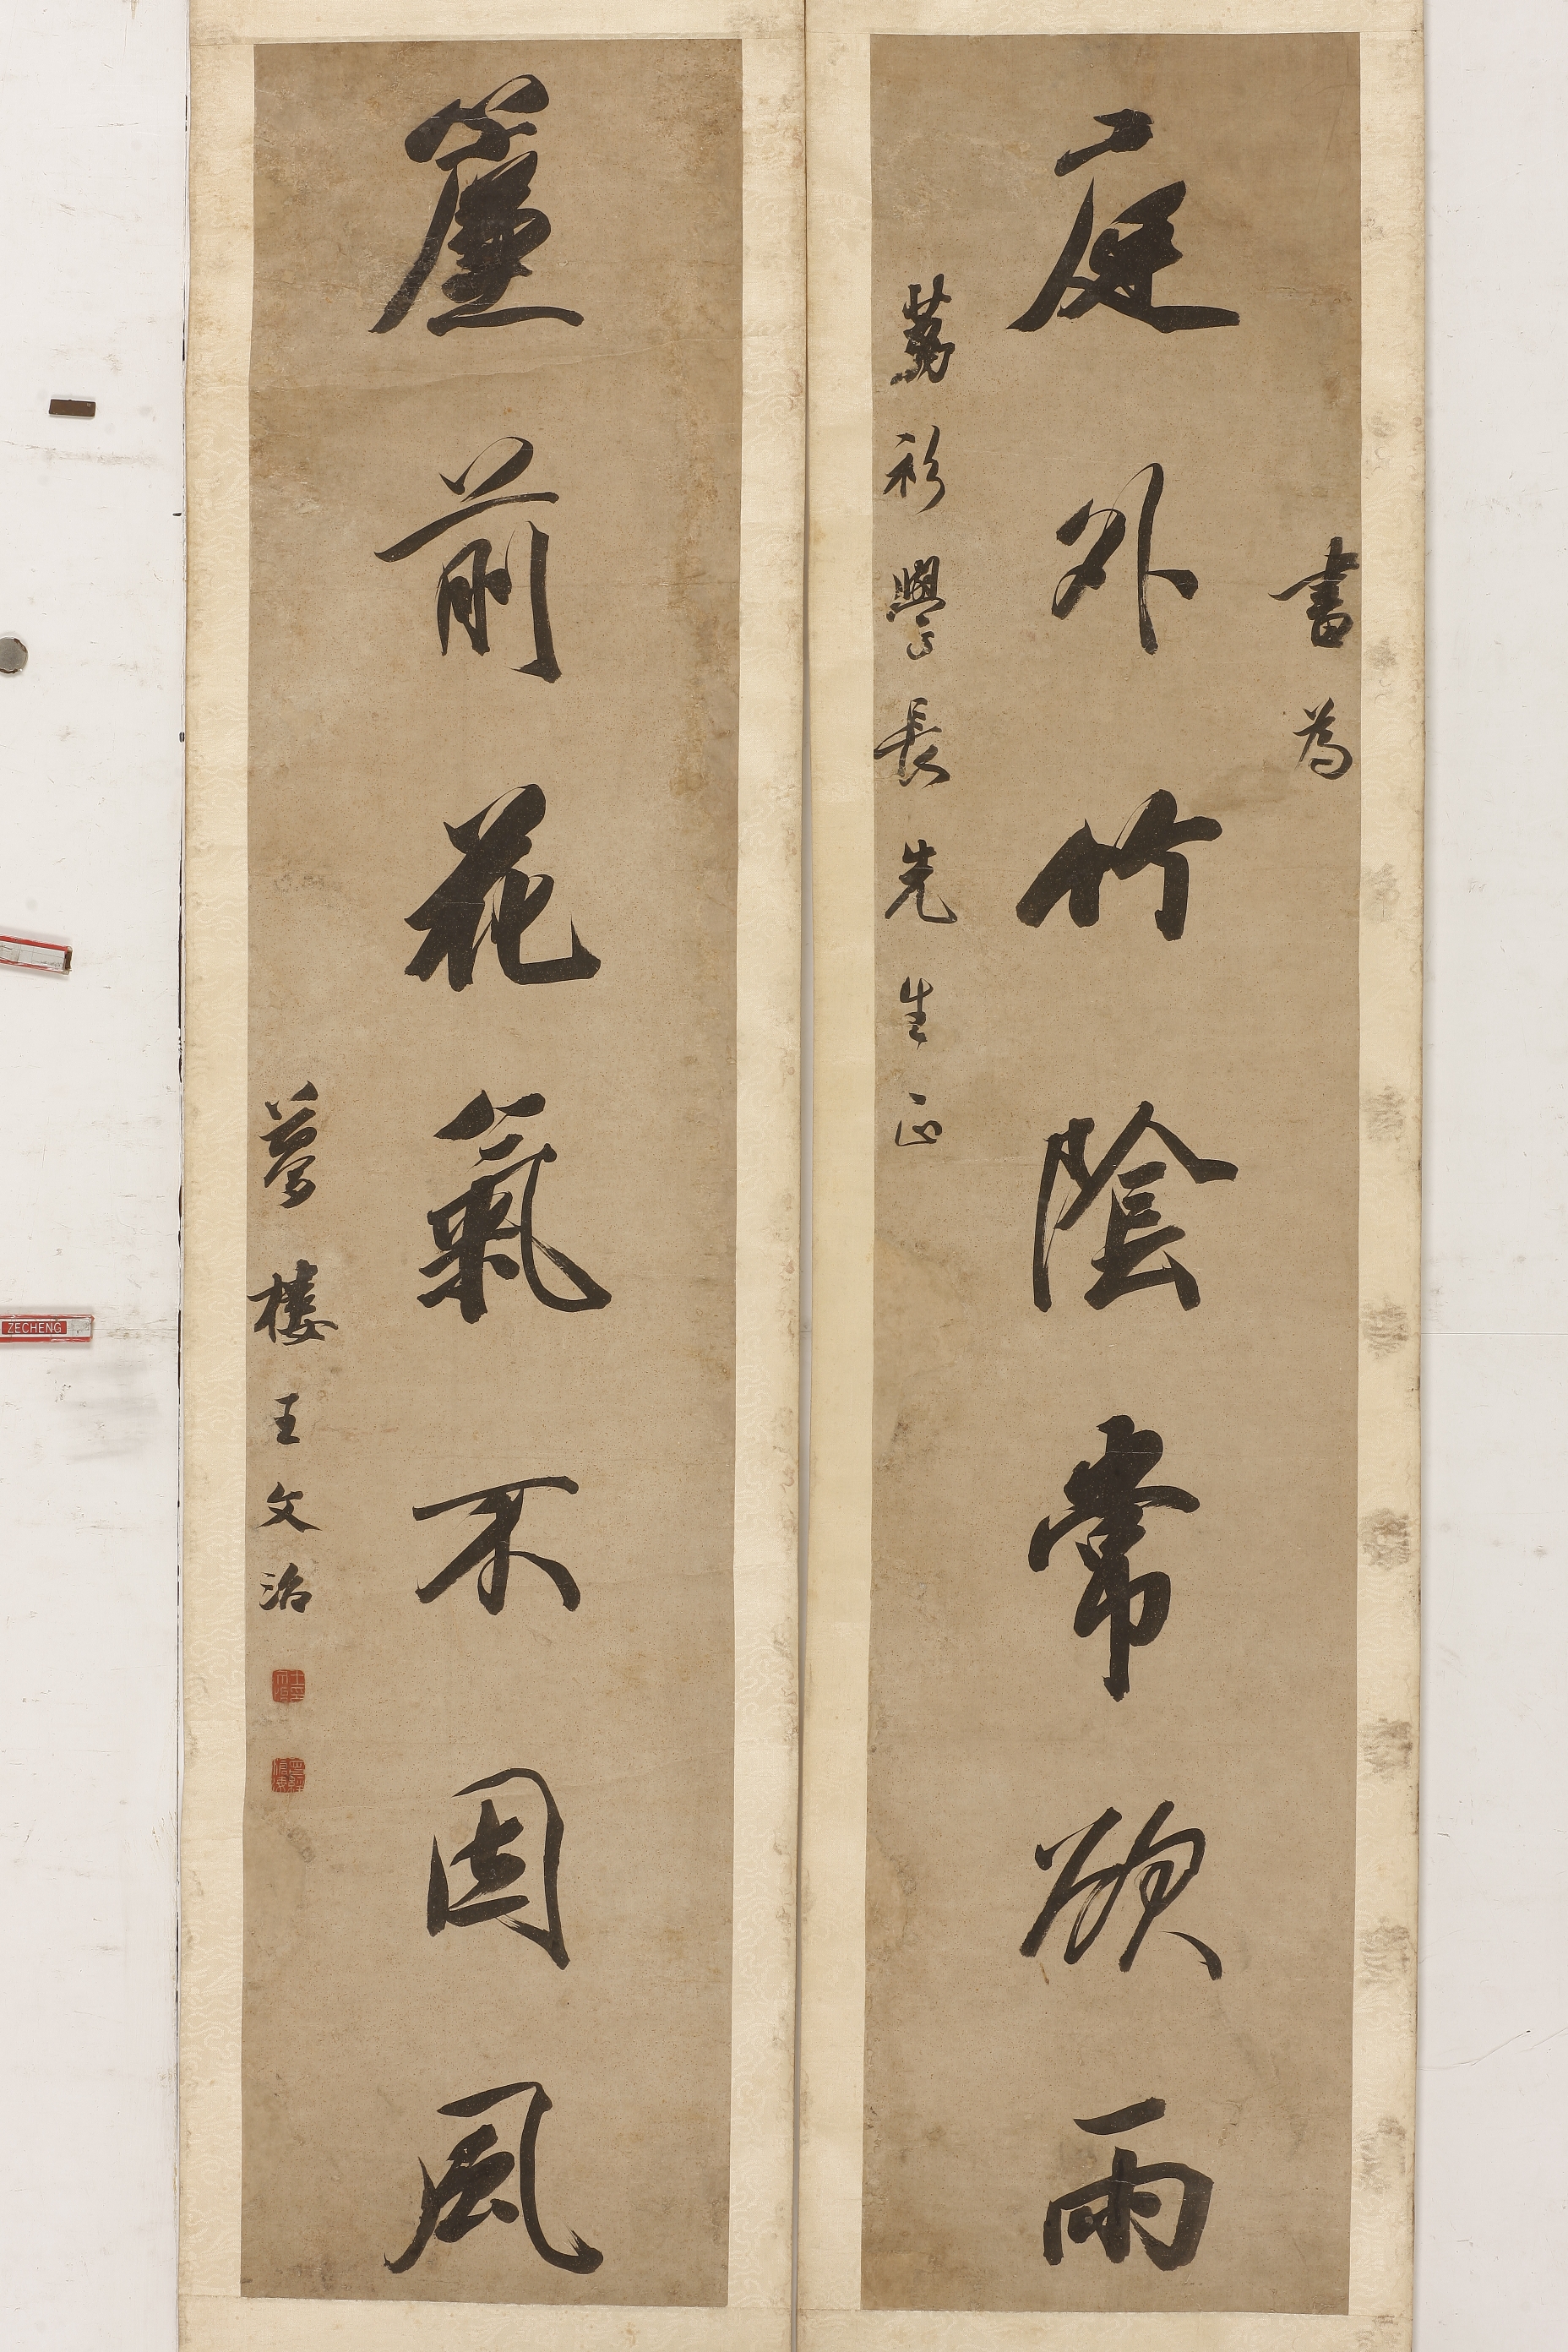 書為
庭外竹陰常欲雨
學長先生正
簾前花氣不因風
夢樓王文治
ZECHENG